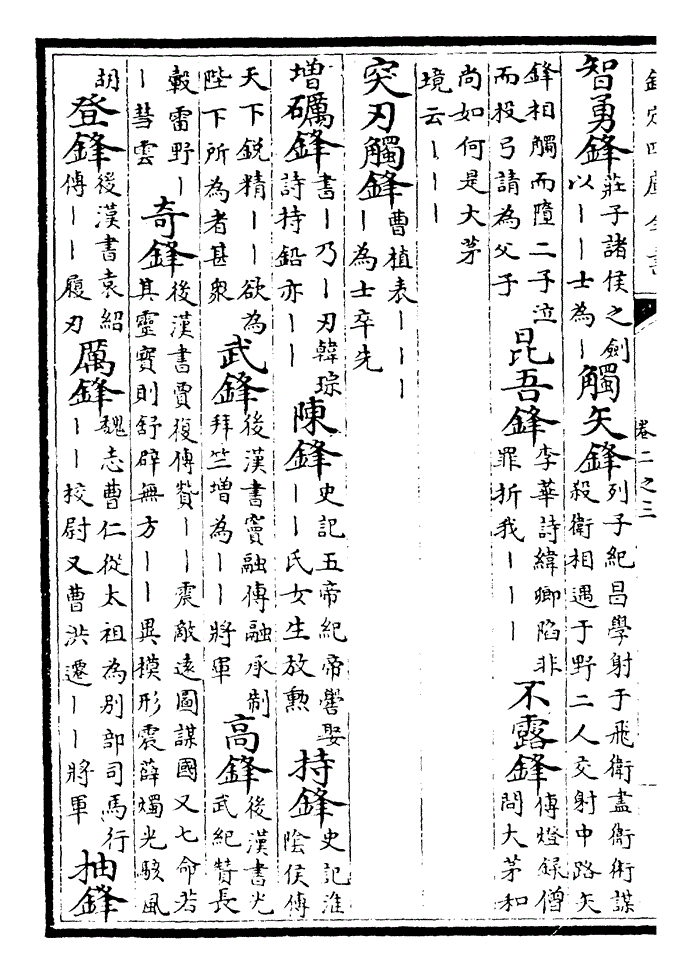 欽定四庫全書 卷二之三
智勇鋒 莊子諸侯之劍以丨丨士為丨 觸矢鋒 列子紀昌學射于飛衛盡衛術謀殺衛相遇于野二人交射中路矢
鋒相觸而墮二子泣而投弓請為父子 昆吾鋒 李華詩緯卿陷非罪折我丨丨丨 不露鋒 傳燈録僧問大茅和
尚如何是大茅境云丨丨丨
突刃觸鋒 曹植表丨丨丨丨為士卒先
增礪鋒 書丨乃丨刃韓琮詩持鉛亦丨丨 陳鋒 史記五帝紀帝嚳娶丨丨氏女生放勲 持鋒 史記淮陰侯傳
天下鋭精丨丨欲為陛下所為者甚衆 武鋒 後漢書竇融傳融承制拜竺增為丨丨將軍 高鋒 後漢書光武紀贊長
轂雷野丨丨彗雲 奇鋒 後漢書賈復傳贊丨丨震敵逺圖謀國又七命若其靈寶則舒辟無方丨丨異模形震薛燭光駭風
胡 登鋒 後漢書袁紹傳丨丨履刃 厲鋒 魏志曹仁從太祖為别部司馬行丨丨校尉又曹洪遷丨丨將軍 抽鋒